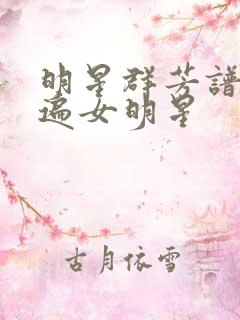 明星群芳譜
遍女明星
古月依雪